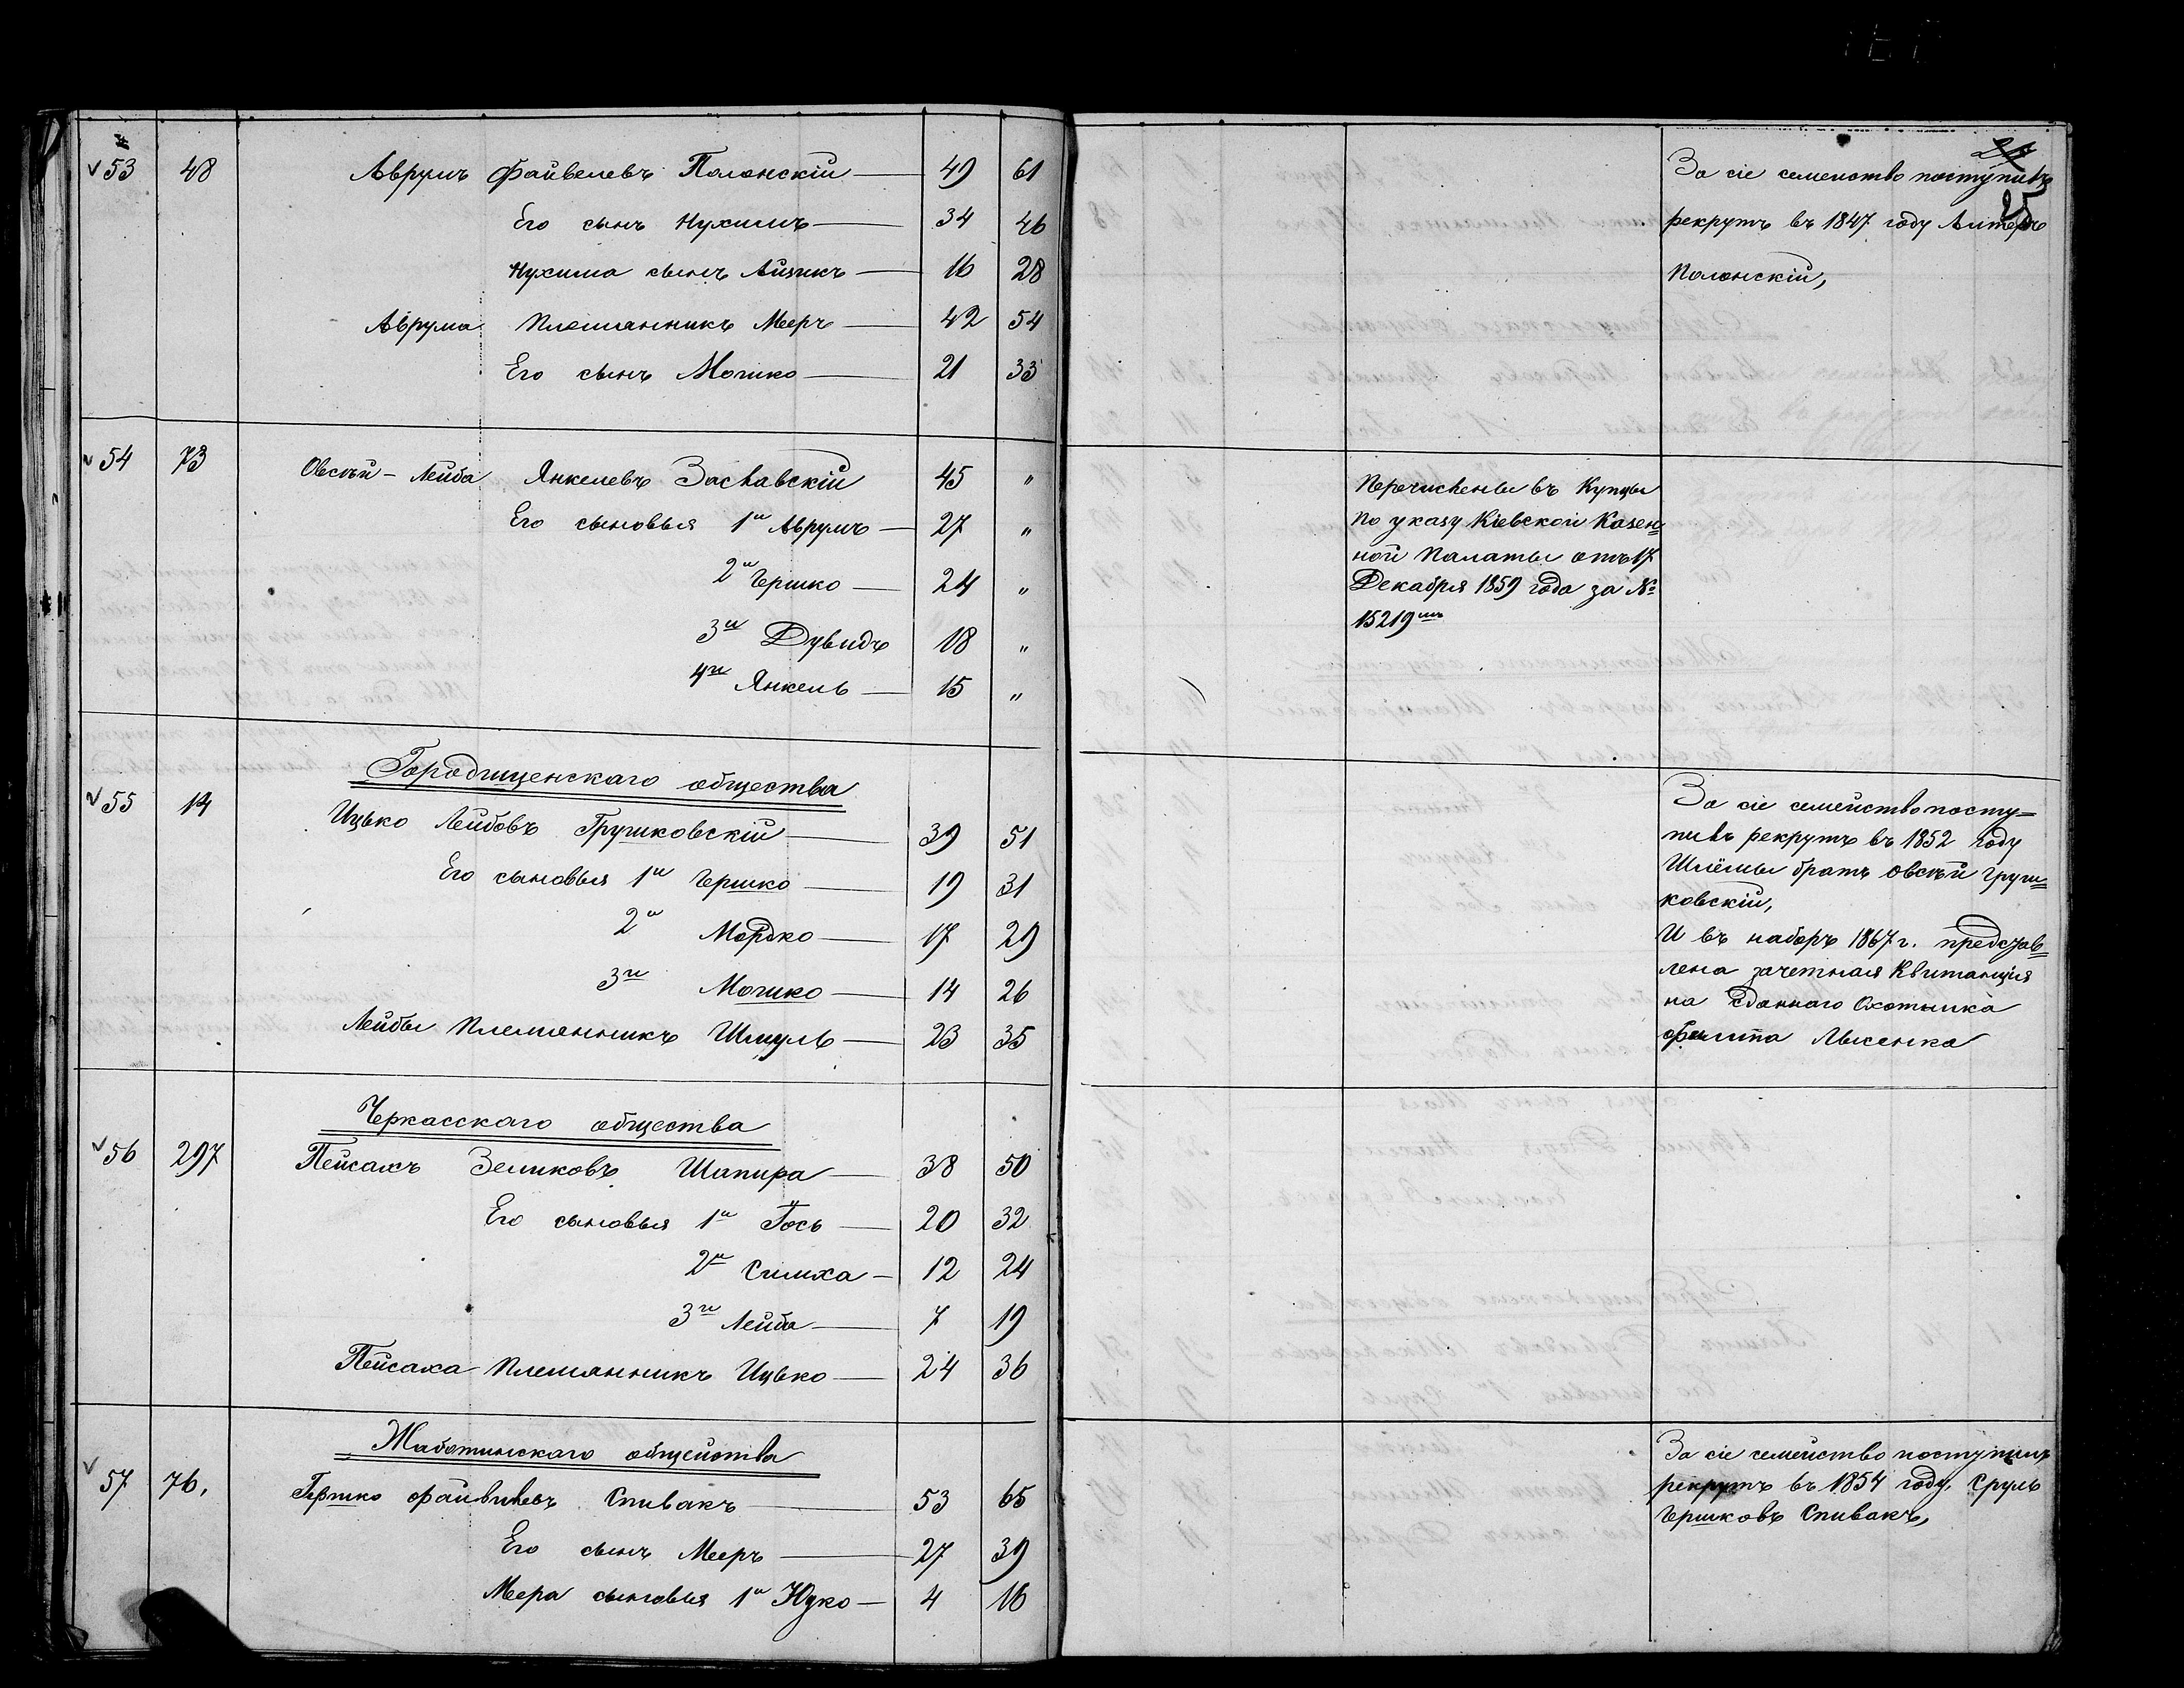 24
25
53 48 Аврумъ Файвелевъ Полонскій 49 61
Его сынъ Нухимъ 34 46
Нухима сынъ Айзикъ 16 28
Аврума Племянникъ Мееръ 42 54
Его сынъ Мошко 21 33
За сіе семейство поступилъ
рекрутъ въ 1847 году Алтеръ
Полонскій,
54 73 Овсѣй - Лейба Янкелевъ Заславскій 45 "
Его сыновья 1й Аврумъ 27 "
2й Гершко 24 "
3й Дувидъ 18 "
4й Янкель 15 "
Перечислены въ Купцы
по указу Кіевской Казен=
ной Палаты отъ 17
Декабря 1859 года за №
15219мъ
Городищенскаго общества
55 14 Ицько Лейбовъ Грушковскій 39 51
Его сыновья 1й Гершко 19 31
2й Мордко 17 29
3й Мошко 14 26
Лейбы Племянникъ Шмуль 23 35
За сіе семейство посту=
пилъ рекрутъ въ 1852 году
Шлёмы братъ Овсѣй Груш=
ковскій,
И въ наборъ 1867 г. представ=
лена зачетная Квитанція
на сданнаго Охотника
Филипа Лысенка
Черкасскаго общества
56 297 Пейсахъ Зеликовъ Шапира 38 50
Его сыновья 1й Іось 20 32
2й Симха 12 24
3й Лейба 7 19
Пейсаха Племянникъ Ицько 24 36
Жаботинскаго общества
57 76. Гершко Файвилевъ Спивакъ 53 65
Его сынъ Мееръ 27 39
Меера сыновья 1й Юдко 4 16
За сіе семейство поступилъ
рекрутъ въ 1854 году, Сруль
Гершковъ Спивакъ,